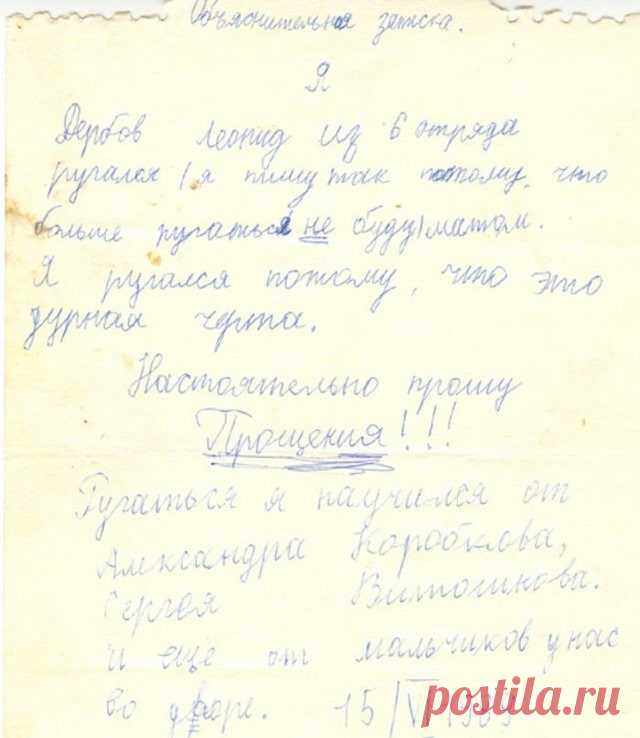 Объяснительная записка.
Я
Дербов Леонид из 6 отряда
ругался (я пишу так потому, что
больше ругаться не буду) матом.
Я ругался потому, что это
дурная черта.
Настоятельно прошу
Прощения!!!
Ругаться я научился от
Александра Коробкова,
Сергея
И ещё от мальчиков у нас
во дворе. 15/VI
postila.ru